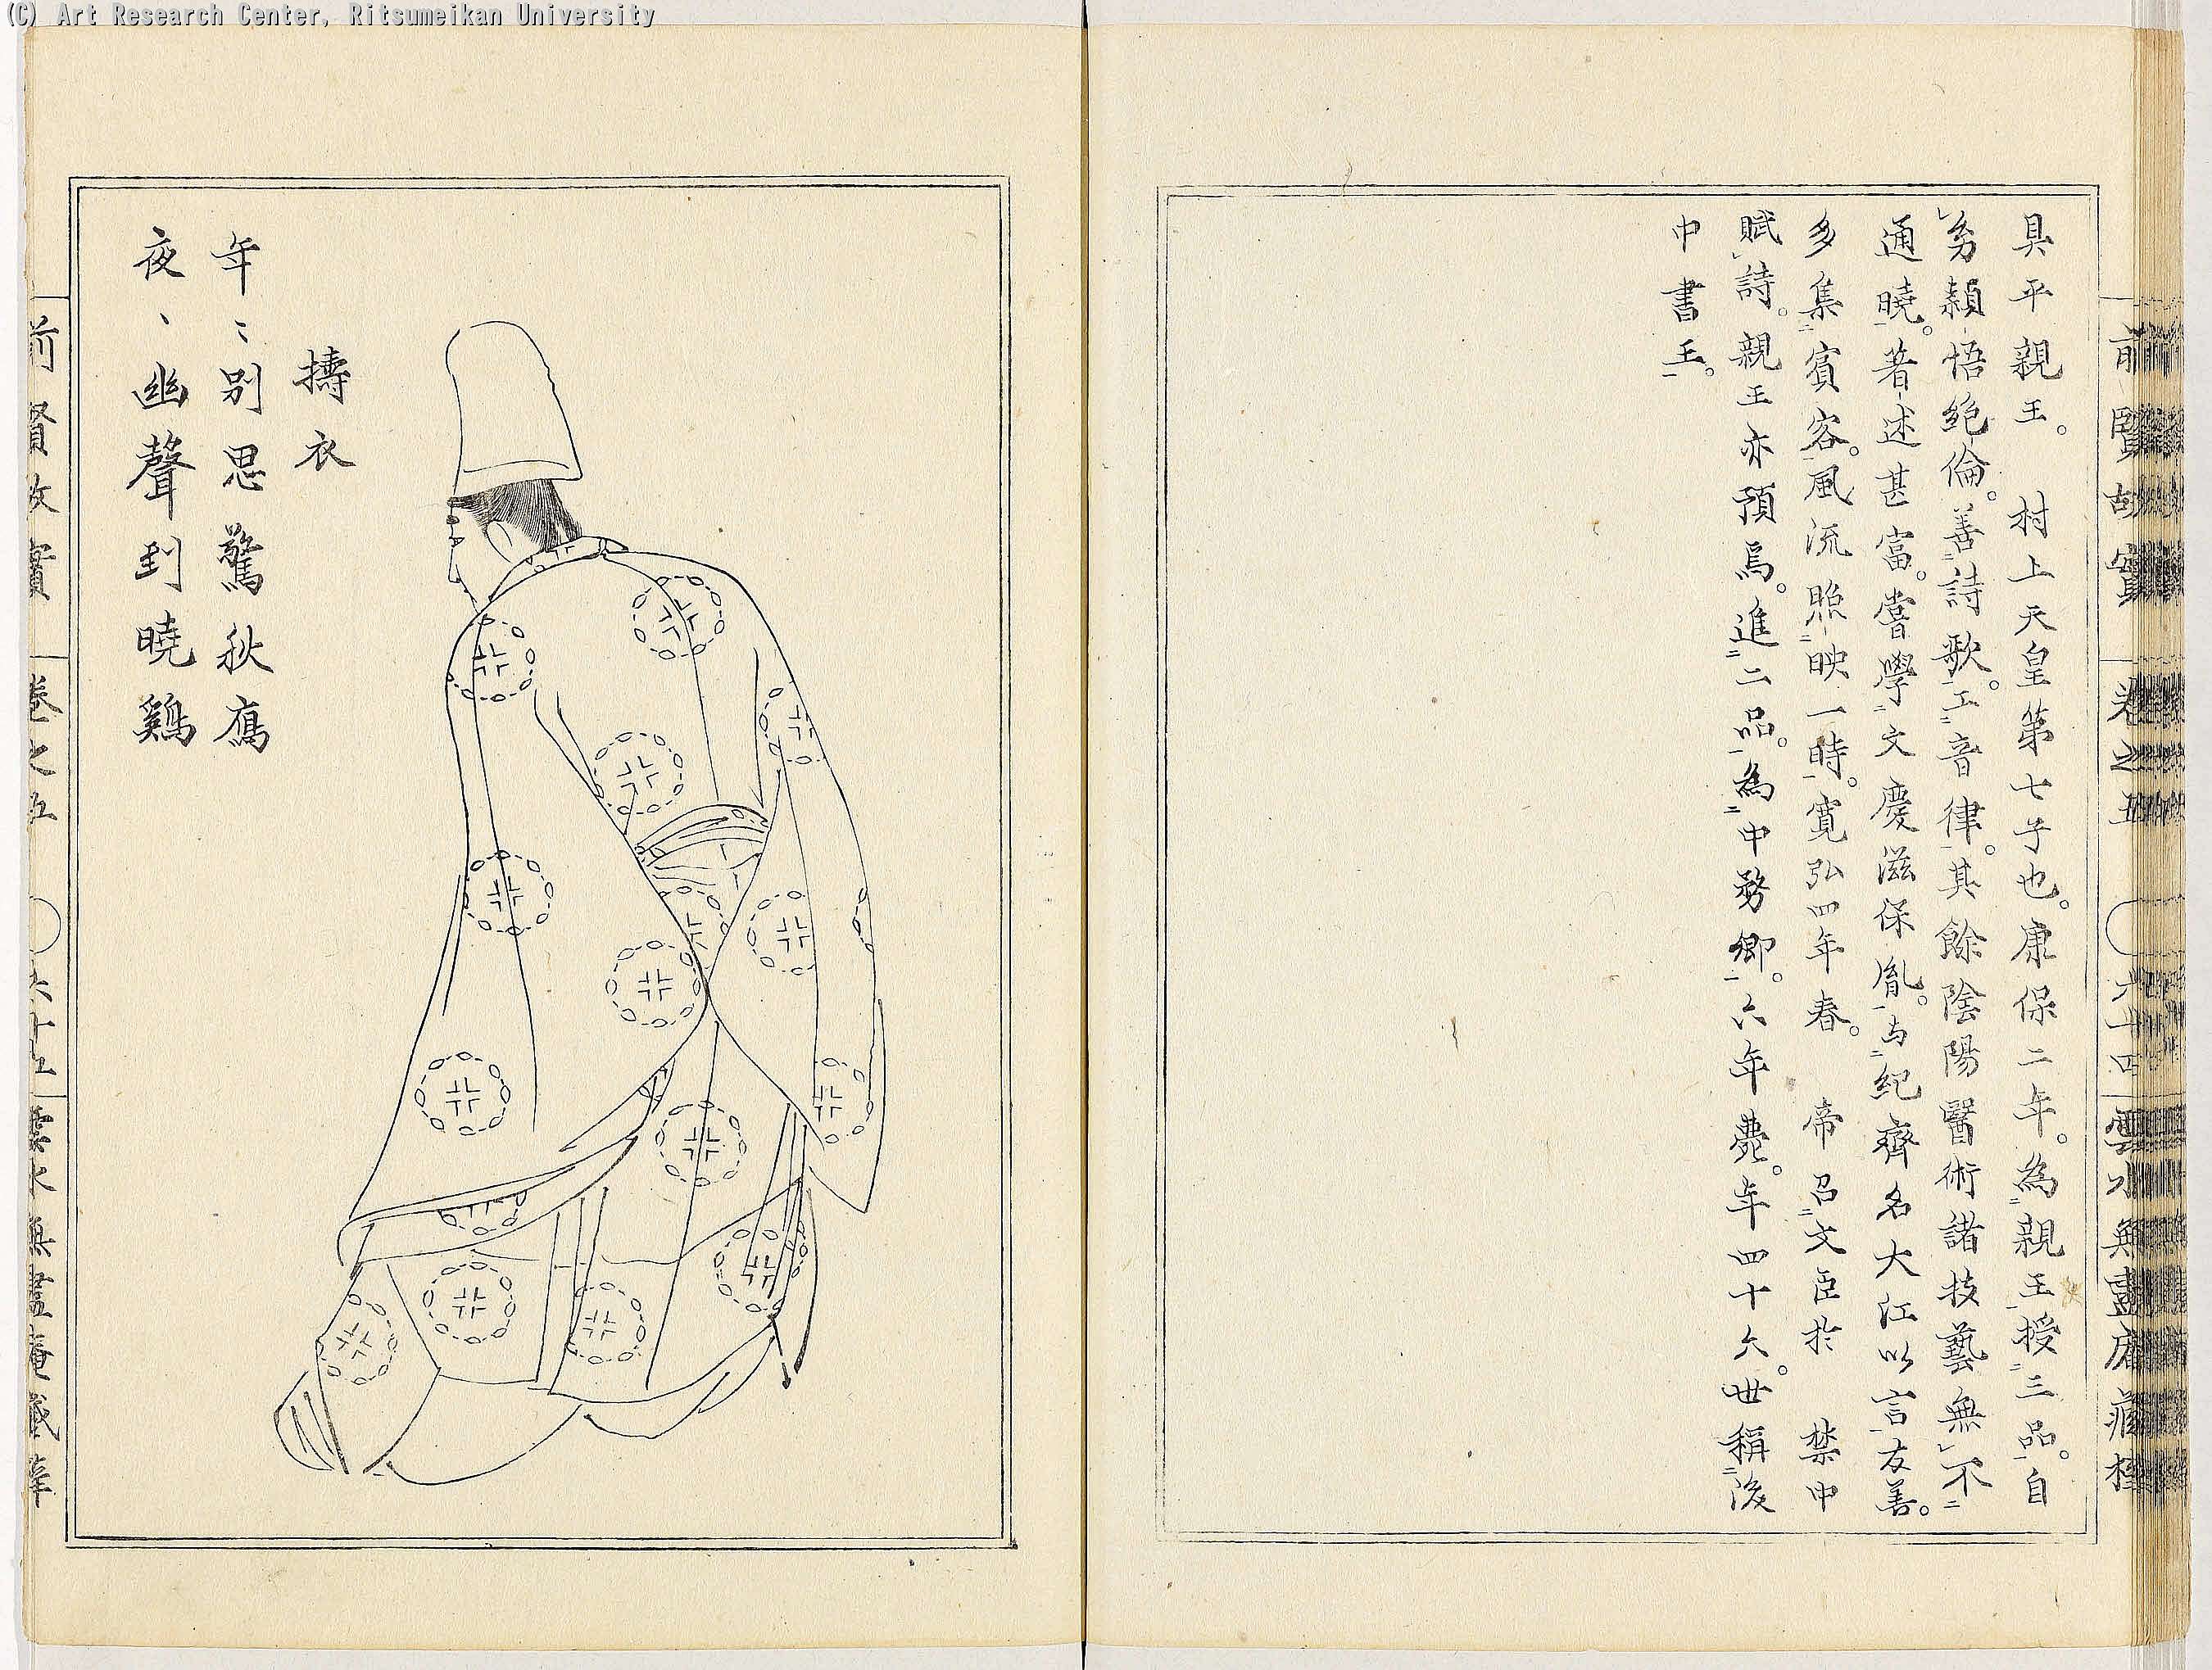 (C) Art Research Center, Ritsumeikan University
前賢故實 卷之五 六十四 雲水無盡庵藏梓
具平親王。 村上天皇第七子也。康保二年。為親王授三品。自
幼穎悟絶倫。善詩歌。工音律。其餘陰陽醫術諸技藝無不
通曉。著述甚富。嘗學文慶滋保胤。与紀齊名大江以言友善。
多集賓客。風流照映一時。寛弘四年春。 帝召文臣於 禁中
賦詩。親王亦預焉。進二品。為中務卿。六年薨。年四十六。世稱後
中書王。
擣衣
年〻別思驚秋鴈
夜〻幽聲到曉鷄
前賢故實 卷之五 六十五 雲水無盡庵藏梓